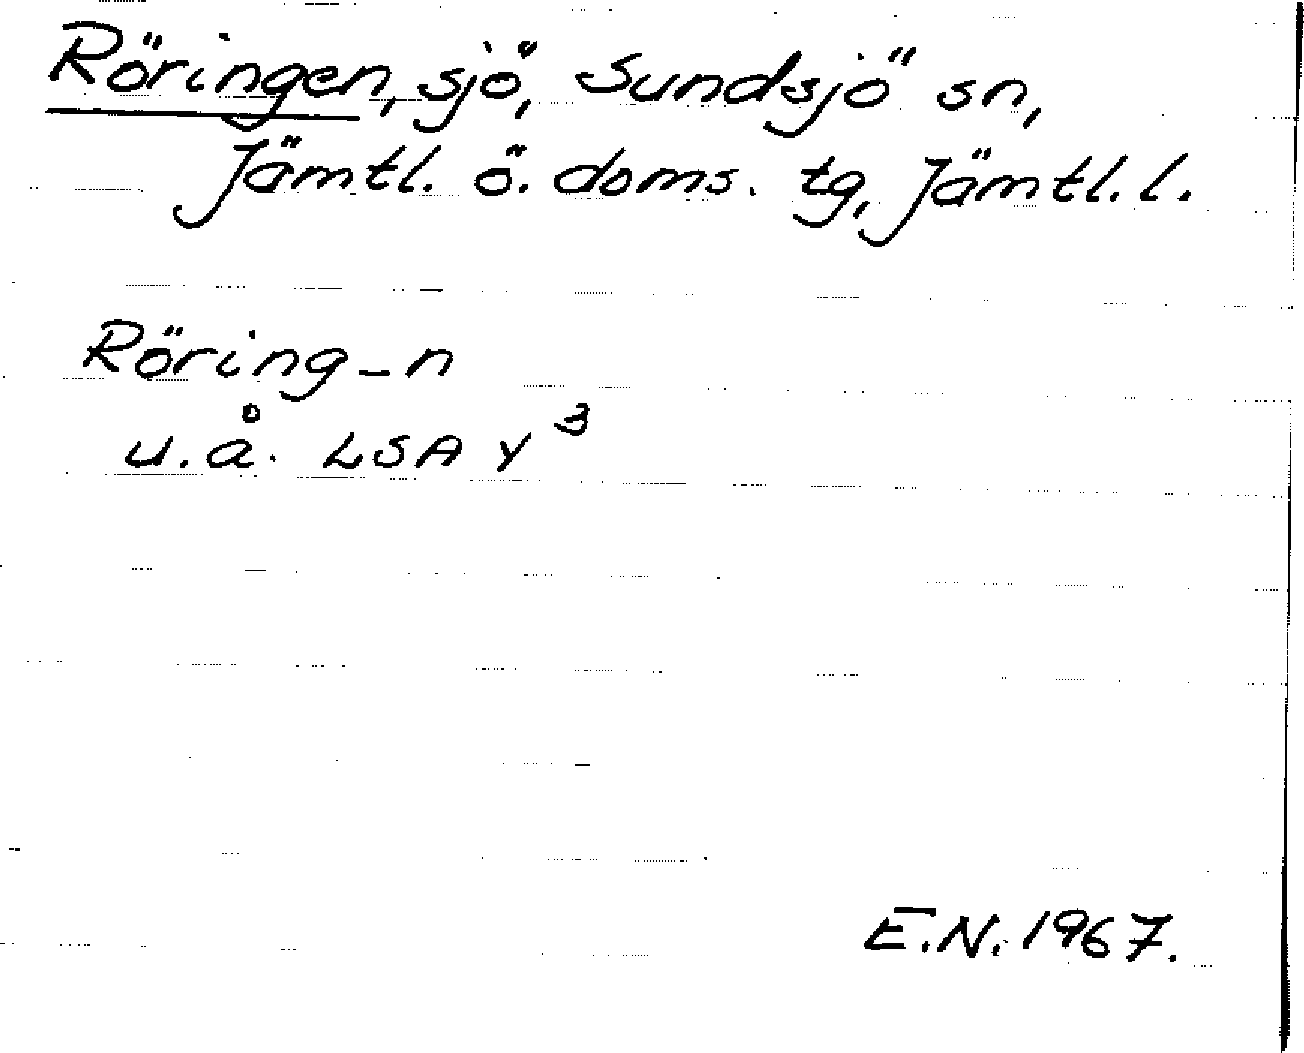 Röringen, sjö, Sundsjö sn,
Jämtl. ö. doms. tg, Jämtl. l.
Röring-n
u.å. LSA Y 3
E.N. 1967.